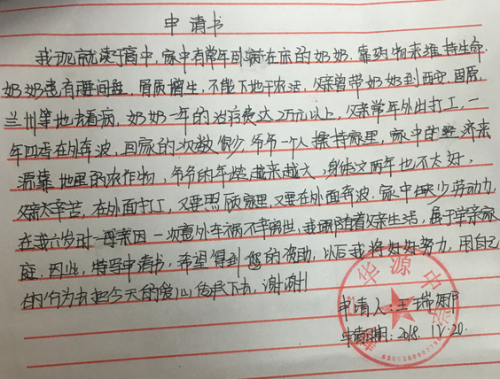 申请书
我现就读于高中，家中有常年卧病在床的奶奶，靠药物来维持生命，
奶奶患有腰间盘，骨质增生，不能下地干农活，父亲曾带奶奶到西安，固原，
兰州等地去看病，奶奶一年的治疗费达2万元以上，父亲常年外出打工，一
年四季在外奔波，回家的次数很少，爷爷一个人操持家里，家中的经济来
源靠地里的农作物，爷爷的年龄越来越大，身体这两年也不太好，
父亲太辛苦，在外面打工，又要照顾家里，又要在外面奔波。家中缺少劳动力
在我六岁时母亲因一次意外车祸不幸离世，我跟随着父亲生活，属于单亲家
庭。因此，特写申请书，希望得到您的资助，以后我将好好努力，用自己
的行为去把今天的爱心传承下去，谢谢！
申请人：王瑞
申请日期：2018. IV. 20.
华源中学